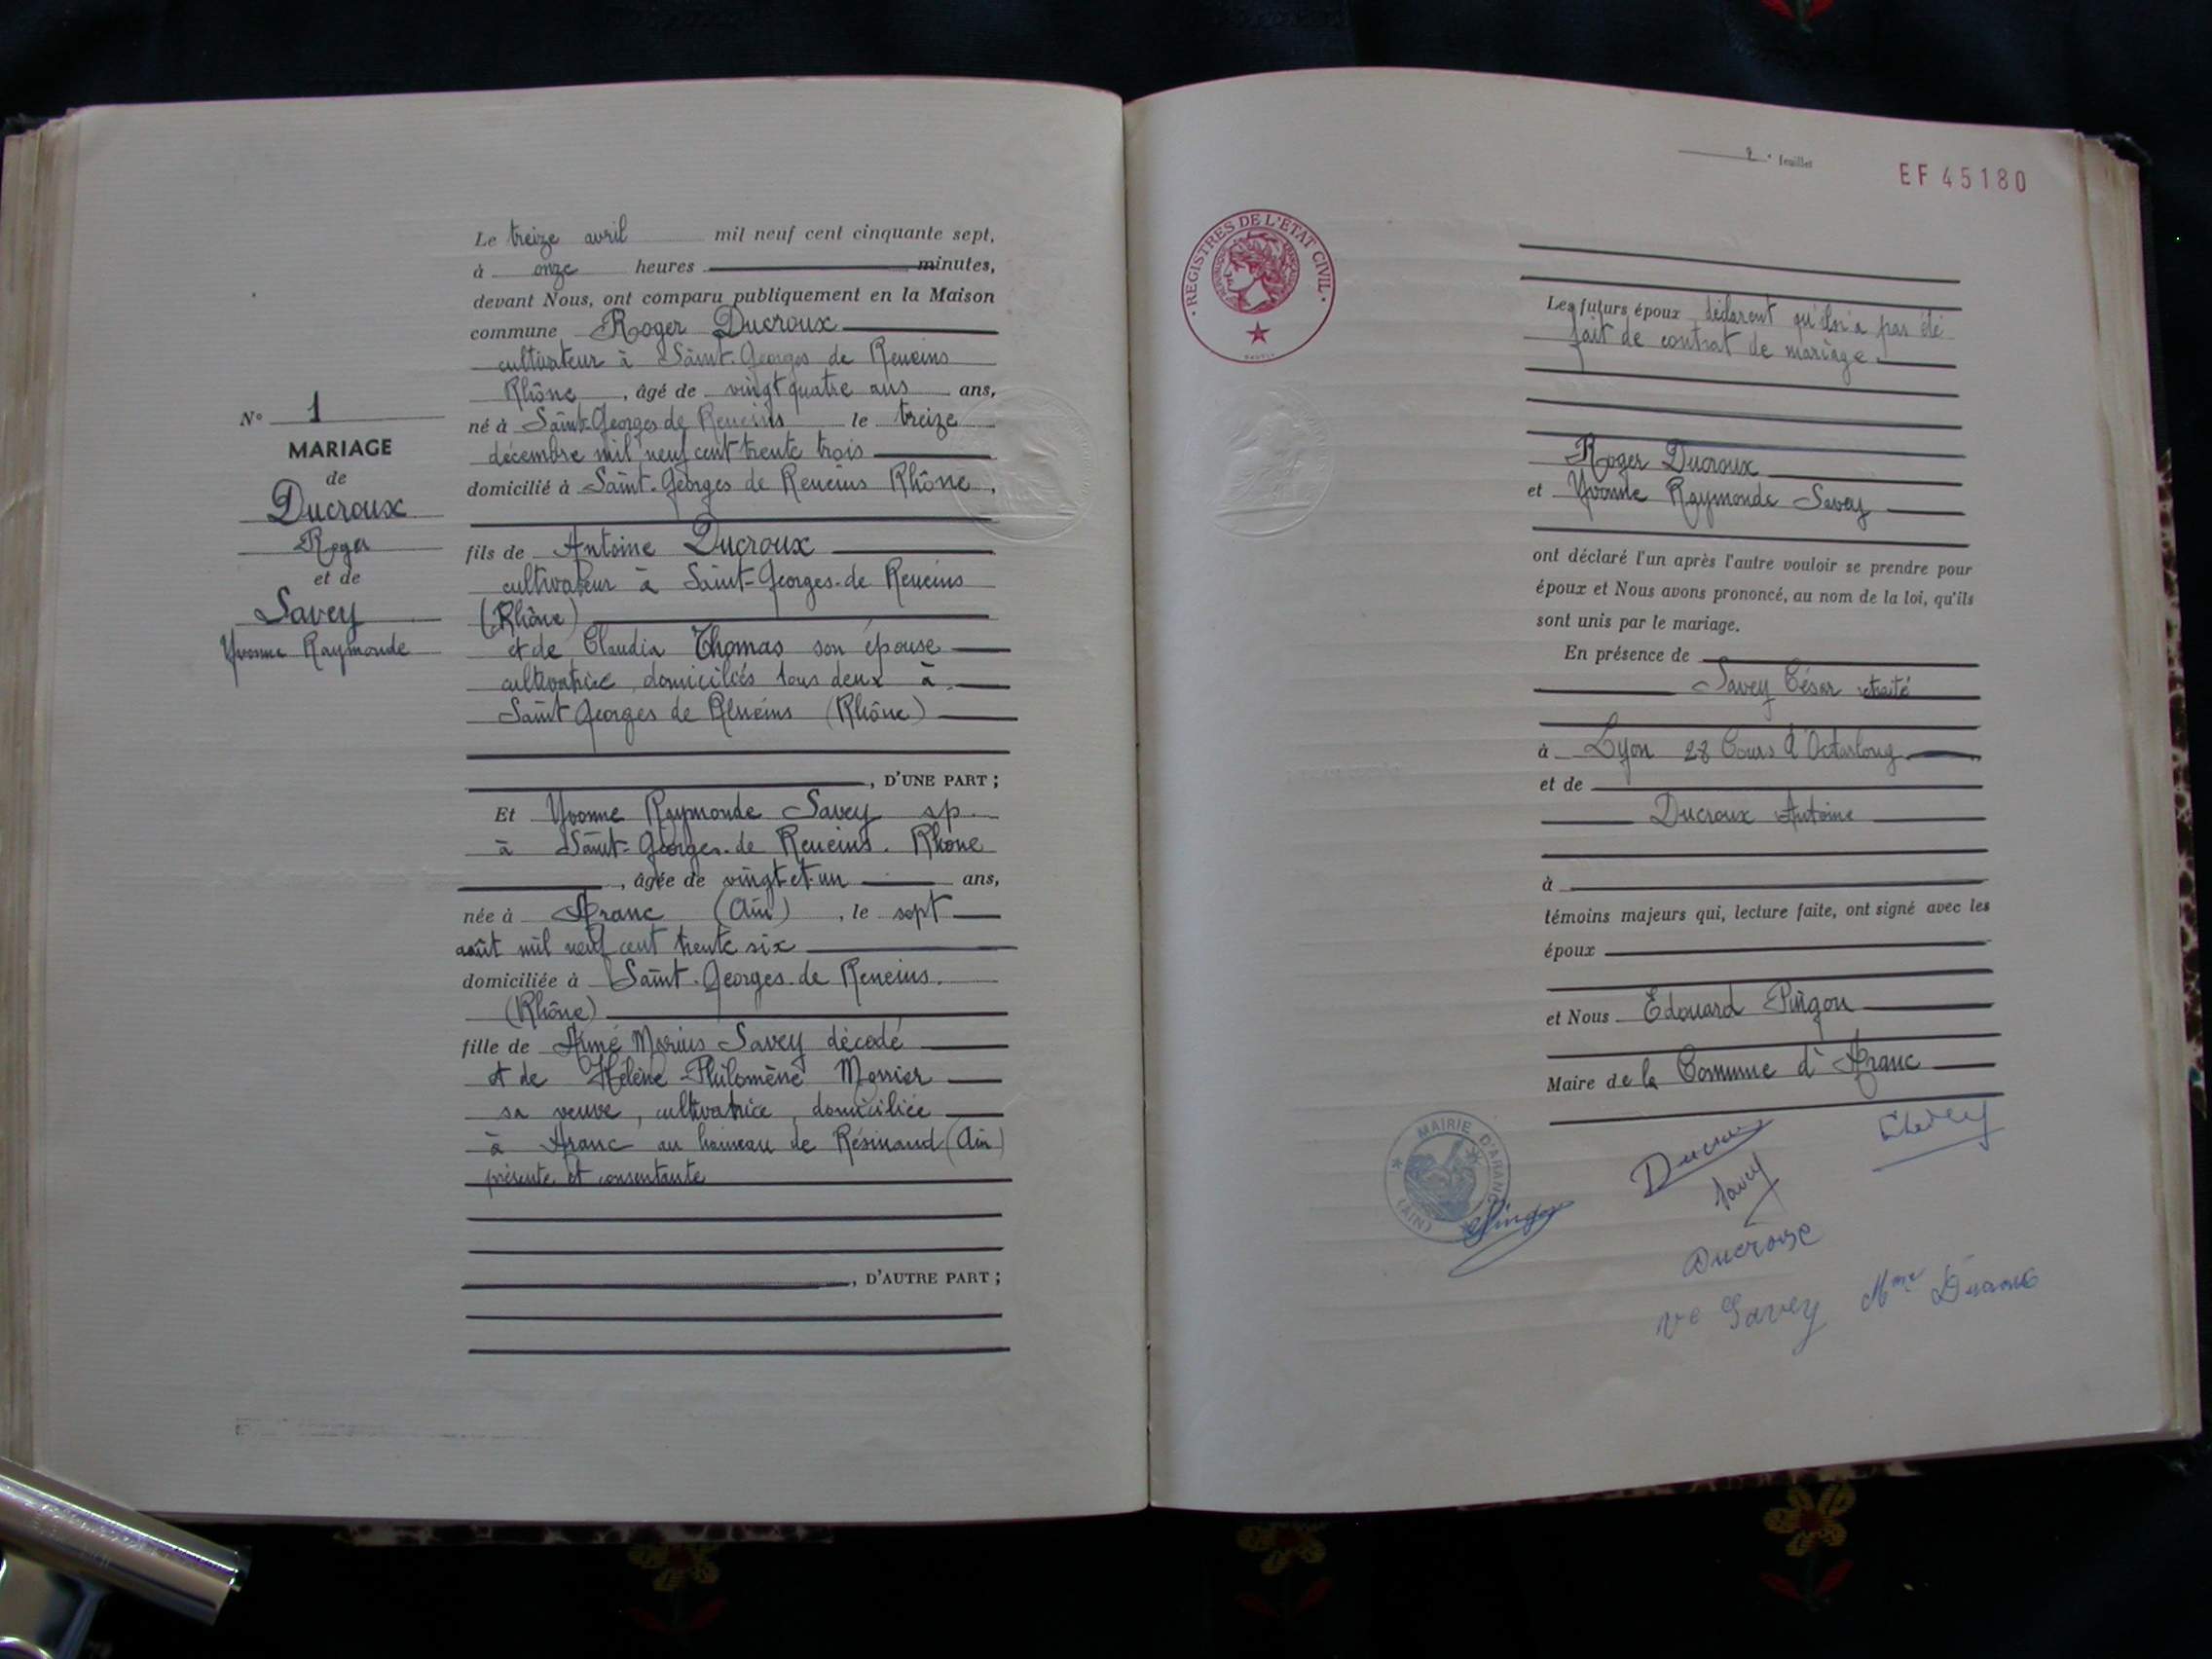 N° 1
MARIAGE
de
Ducroux
Roger
et de
Savey
Yvonne Raymonde
Le treize avril mil neuf cent cinquante sept,
à onze heures minutes,
devant Nous, ont comparu publiquement en la Maison
commune Roger Ducroux
cultivateur à Saint-Georges de Reneins
Rhône, âgé de vingt quatre ans ans,
né à Saint-Georges de Reneins le treize
décembre mil neuf cent trente trois
domicilié à Saint-Georges de Reneins Rhône,
fils de Antoine Ducroux
cultivateur à Saint-Georges-de Reneins
(Rhône)
et de Claudia Thomas son épouse
cultivatrice, domiciliés tous deux à
Saint Georges de Reneins (Rhône)
, D'UNE PART ;
Et Yvonne Raymonde Savey sp.
à Saint-Georges-de Reneins. Rhône
, âgée de vingt-et-un ans,
née à Aranc (Ain), le sept
août mil neuf cent trente six
domiciliée à Saint-Georges-de Reneins.
(Rhône)
fille de Aimé Marius Savey décédé
et de Hélène Philomène Monier
sa veuve, cultivatrice, domiciliée
à Aranc au hameau de Résinand (Ain)
présente et consentante
, D'AUTRE PART ;
2e feuillet
EF 45180
REGISTRES DE L'ÉTAT CIVIL
RÉPUBLIQUE FRANÇAISE
Les futurs époux déclarent qu'il n'a pas été
fait de contrat de mariage.
Roger Ducroux
et Yvonne Raymonde Savey
ont déclaré l'un après l'autre vouloir se prendre pour
époux et Nous avons prononcé, au nom de la loi, qu'ils
sont unis par le mariage.
En présence de
Savey César retraité
à Lyon 28 Cours d'
et de
Ducroux Antoine
à
témoins majeurs qui, lecture faite, ont signé avec les
époux
et Nous Edouard Pingon
Maire de la Commune d'Aranc
MAIRIE D'ARANC (AIN)
Pingon
Ducroux
Savey
Ducroux
Ve Savey Mme Ducroux